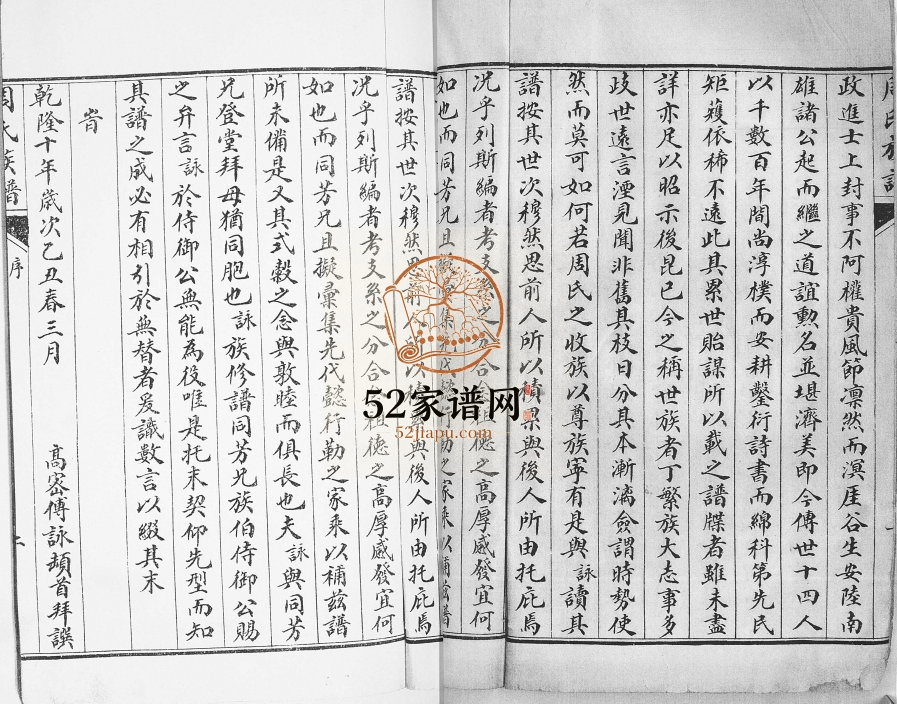 周氏族譜
政進士上封事不阿權貴風節凛然而溟厓谷生安陸南
雄諸公起而繼之道誼勲名並堪濟美即今傳世十四人
以千數百年間尚淳樸而安耕鑿衍詩書而綿科第先民
矩矱依稀不遠此其累世貽謀所以載之譜牒者雖未盡
詳亦足以昭示後昆已今之稱世族者丁繁族大志事多
歧世遠言湮見聞非舊其枝日分其本漸漓僉謂時勢使
然而莫可如何若周氏之收族以尊族寧有是與詠讀其
譜按其世次穆然思前人所以積累與後人所由托庇焉
况乎列斯編者考支系之分合祖德之高厚感發宜何
如也而同芳兄且擬彙集先代懿行勒之家乘以補兹譜
譜按其世次穆然思前人所以積累與後人所由托庇焉
况乎列斯編者考支系之分合祖德之高厚感發宜何
如也而同芳兄且擬彙集先代懿行勒之家乘以補兹譜
所未備是又其式穀之念與敦睦而俱長也夫詠與同芳
兄登堂拜母猶同胞也詠族修譜同芳兄族伯侍御公賜
之弁言詠於侍御公無能為役唯是托末契仰先型而知
其譜之成必有相引於無替者爰識數言以綴其末
旹
乾隆十年歲次乙丑春三月
高密傅詠頓首拜譔
周氏族譜
序
52家谱网
52jiapu.com